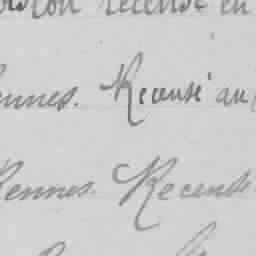 recensé en
Rennes. Recensé au
Rennes. Recensé